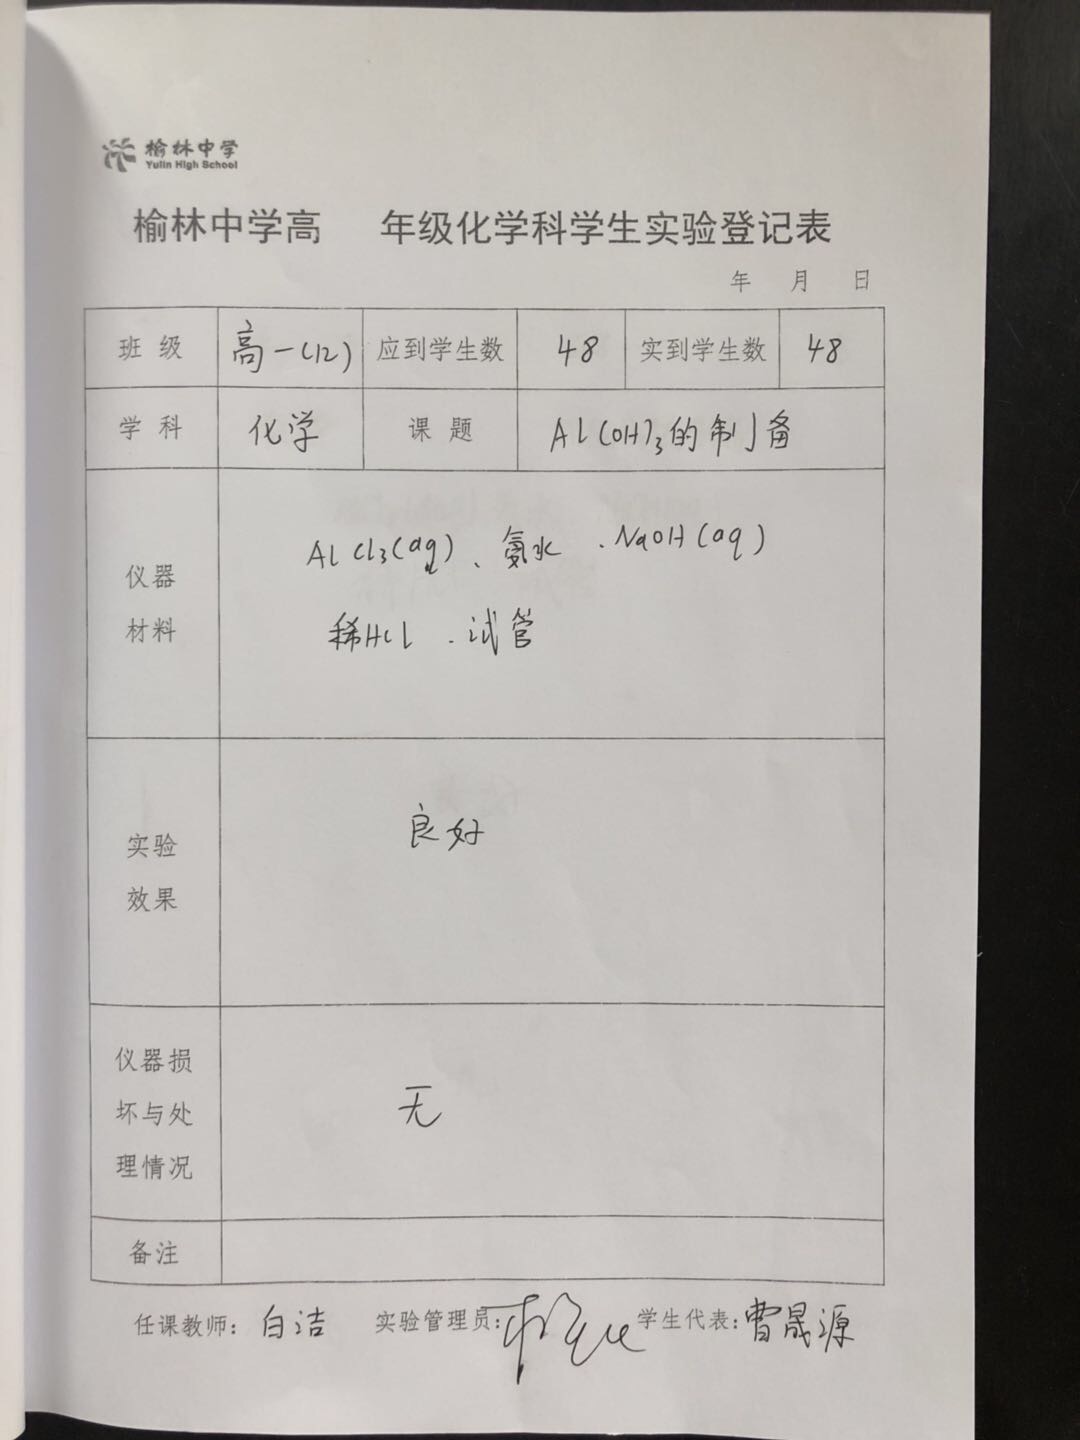 榆林中学
Yulin High School
榆林中学高 年级化学科学生实验登记表
年 月 日
班 级 高一(12) 应到学生数 48 实到学生数 48
学 科 化学 课 题 Al(OH)3的制备
仪器
材料
AlCl3(aq)、氨水 .NaOH(aq)
稀HCl .试管
实验
效果
良好
仪器损
坏与处
理情况
无
备注
任课教师: 白洁 实验管理员: 学生代表: 曹晟源